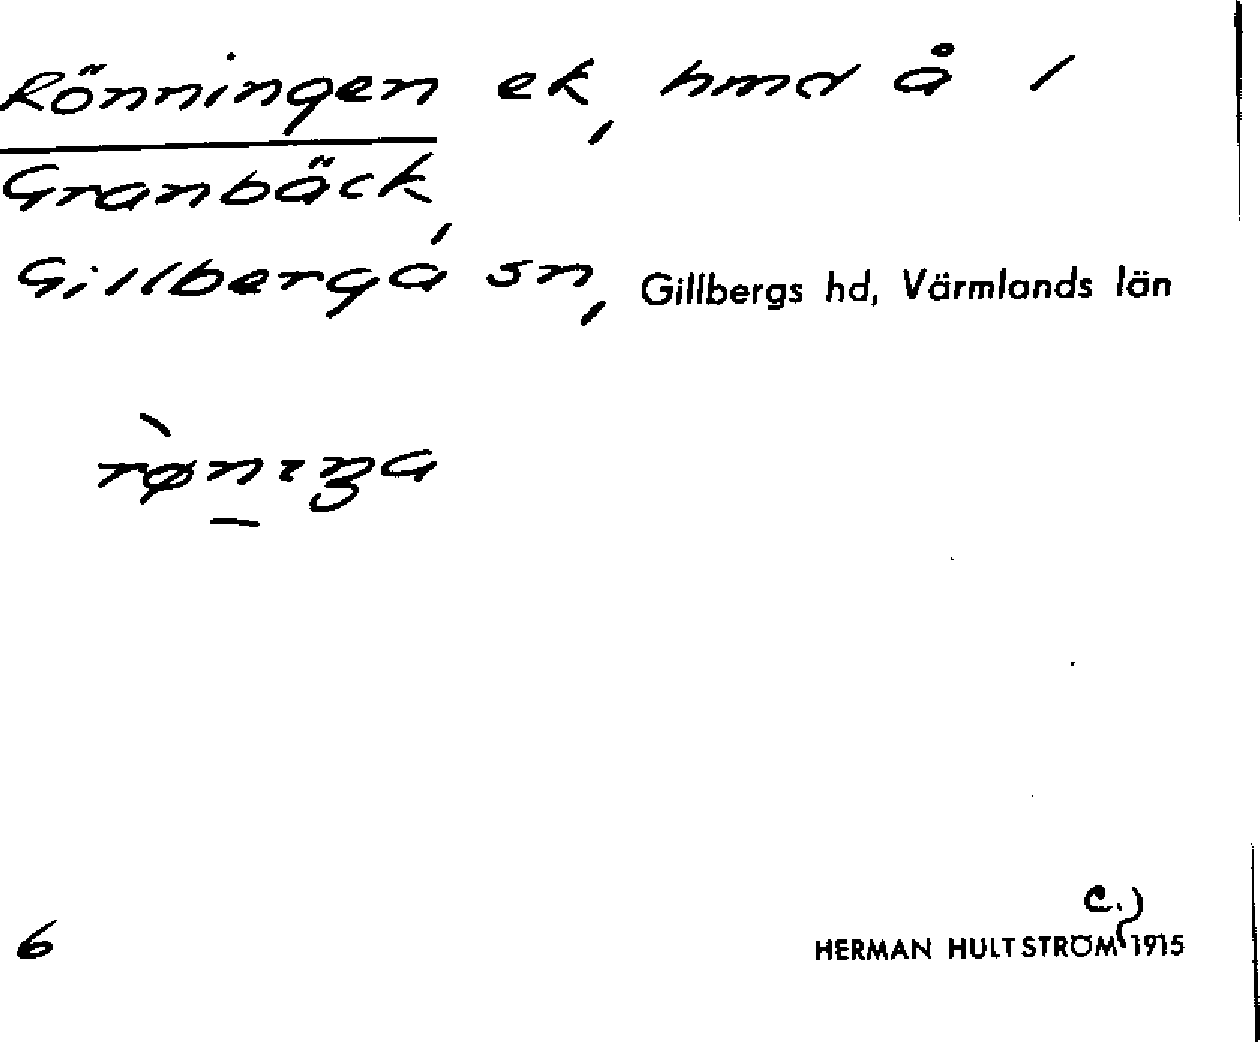 Rönningen ek, hmd å 1
Granbäck,
Gillberga sn, Gillbergs hd, Värmlands län
rø̀n̲ɪŋa
6
c.)
HERMAN HULTSTRÖM 1915